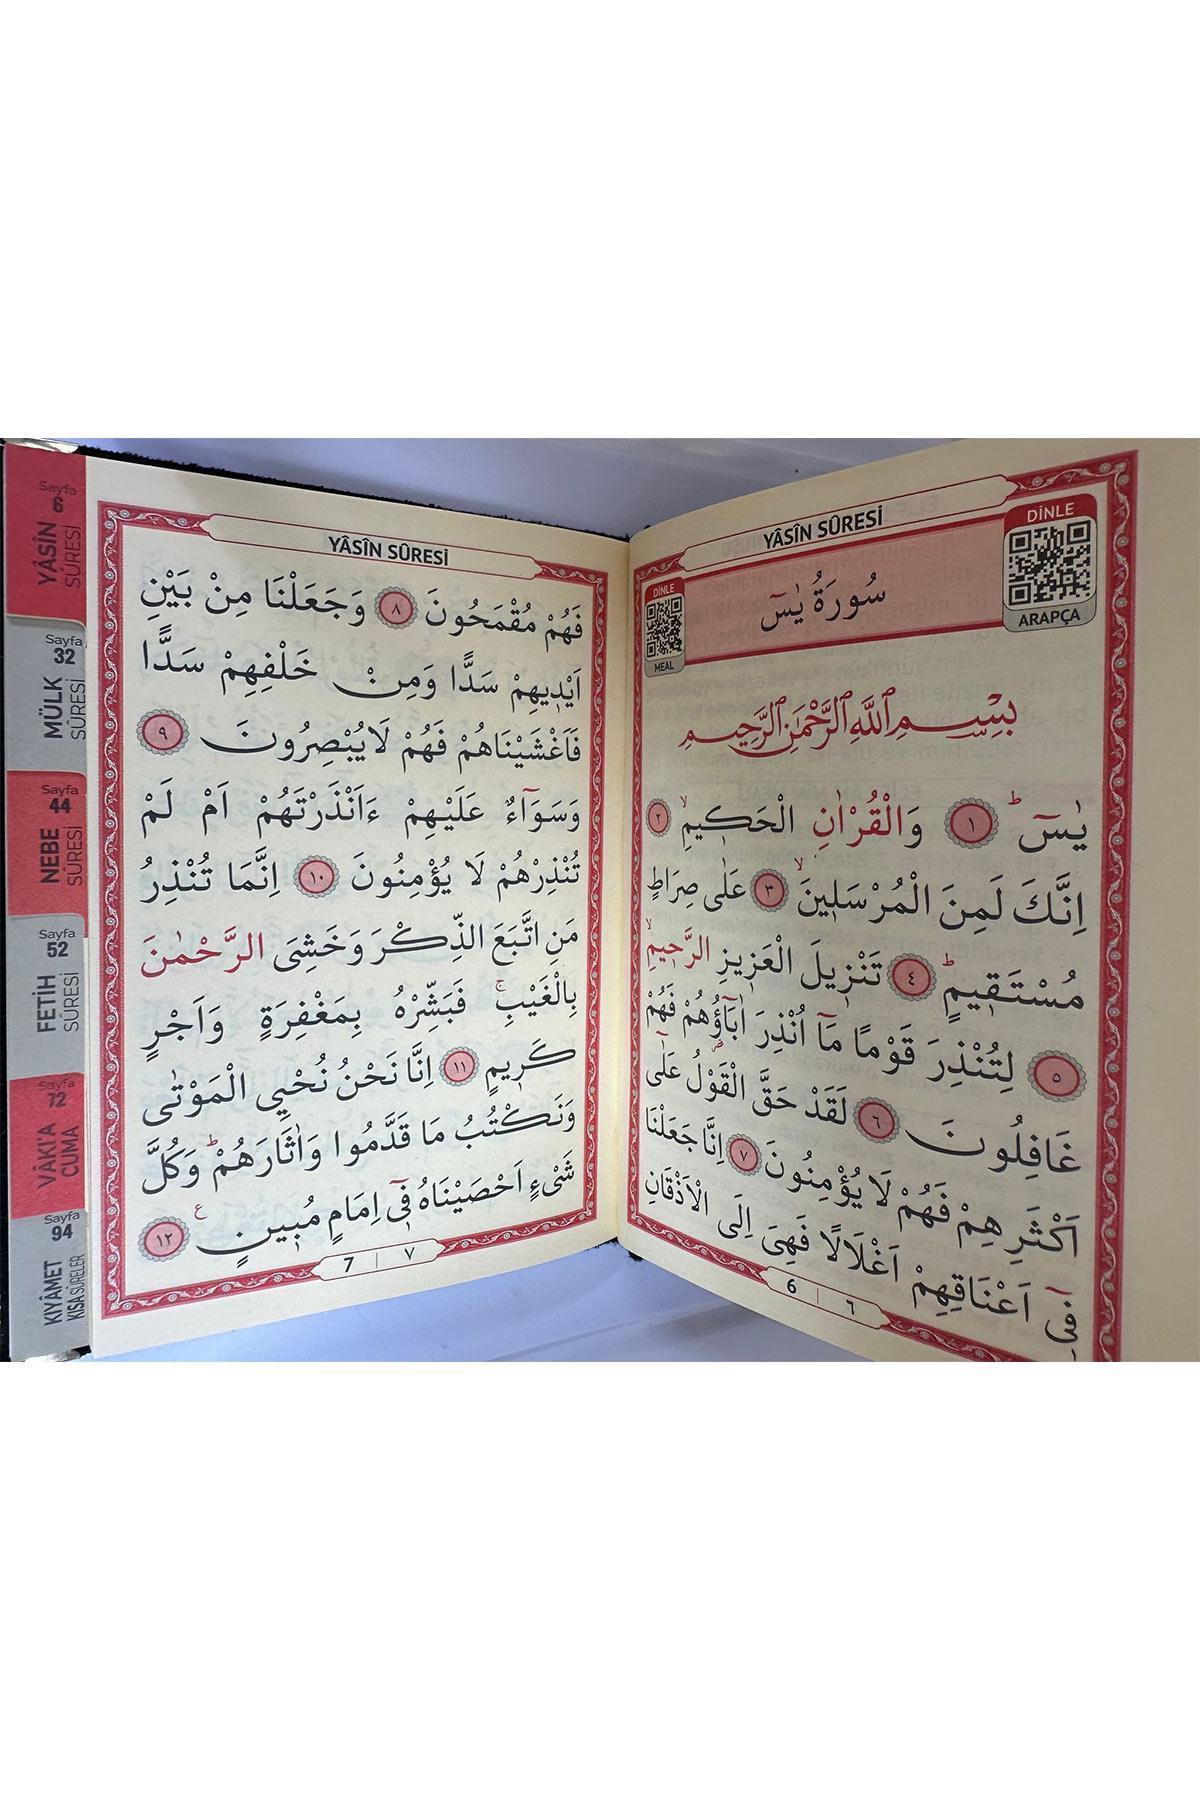 Sayfa
6
YÂSİN
SÛRESİ
Sayfa
32
MÜLK
SÛRESİ
Sayfa
44
NEBE
SÛRESİ
Sayfa
52
FETİH
SÛRESİ
Sayfa
72
VÂKI'A
CUMA
Sayfa
94
KIYÂMET
KISA SÛRELER
YÂSÎN SÛRESİ
DİNLE
ARAPÇA
سُورَةُ يٰسٓ
DİNLE
MEAL
بِسْمِ اللّٰهِ الرَّحْمٰنِ الرَّحِيمِ
يٰسٓ ۚ ﴿١﴾ وَالْقُرْاٰنِ الْحَكٖيمِۙ ﴿٢﴾
اِنَّكَ لَمِنَ الْمُرْسَلٖينَۙ ﴿٣﴾ عَلٰى صِرَاطٍ
مُسْتَقٖيمٍۜ ﴿٤﴾ تَنْزٖيلَ الْعَزٖيزِ الرَّحٖيمِۙ
﴿٥﴾ لِتُنْذِرَ قَوْمًا مَٓا اُنْذِرَ اٰبَٓاؤُ۬هُمْ فَهُمْ
غَافِلُونَ ﴿٦﴾ لَقَدْ حَقَّ الْقَوْلُ عَلٰٓى
اَكْثَرِهِمْ فَهُمْ لَا يُؤْمِنُونَ ﴿٧﴾ اِنَّا جَعَلْنَا
فٖٓى اَعْنَاقِهِمْ اَغْلَالًا فَهِىَ اِلَى الْاَذْقَانِ
6 | ٦
YÂSÎN SÛRESİ
فَهُمْ مُقْمَحُونَ ﴿٨﴾ وَجَعَلْنَا مِنْ بَيْنِ
اَيْدٖيهِمْ سَدًّا وَمِنْ خَلْفِهِمْ سَدًّا
فَاَغْشَيْنَاهُمْ فَهُمْ لَا يُبْصِرُونَ ﴿٩﴾
وَسَوَٓاءٌ عَلَيْهِمْ ءَاَنْذَرْتَهُمْ اَمْ لَمْ
تُنْذِرْهُمْ لَا يُؤْمِنُونَ ﴿١٠﴾ اِنَّمَا تُنْذِرُ
مَنِ اتَّبَعَ الذِّكْرَ وَخَشِىَ الرَّحْمٰنَ
بِالْغَيْبِۚ فَبَشِّرْهُ بِمَغْفِرَةٍ وَاَجْرٍ
كَرٖيمٍ ﴿١١﴾ اِنَّا نَحْنُ نُحْيِي الْمَوْتٰى
وَنَكْتُبُ مَا قَدَّمُوا وَاٰثَارَهُمْۜ وَكُلَّ
شَىْءٍ اَحْصَيْنَاهُ فٖٓى اِمَامٍ مُبٖينٍ ع ﴿١٢﴾
7 | ٧